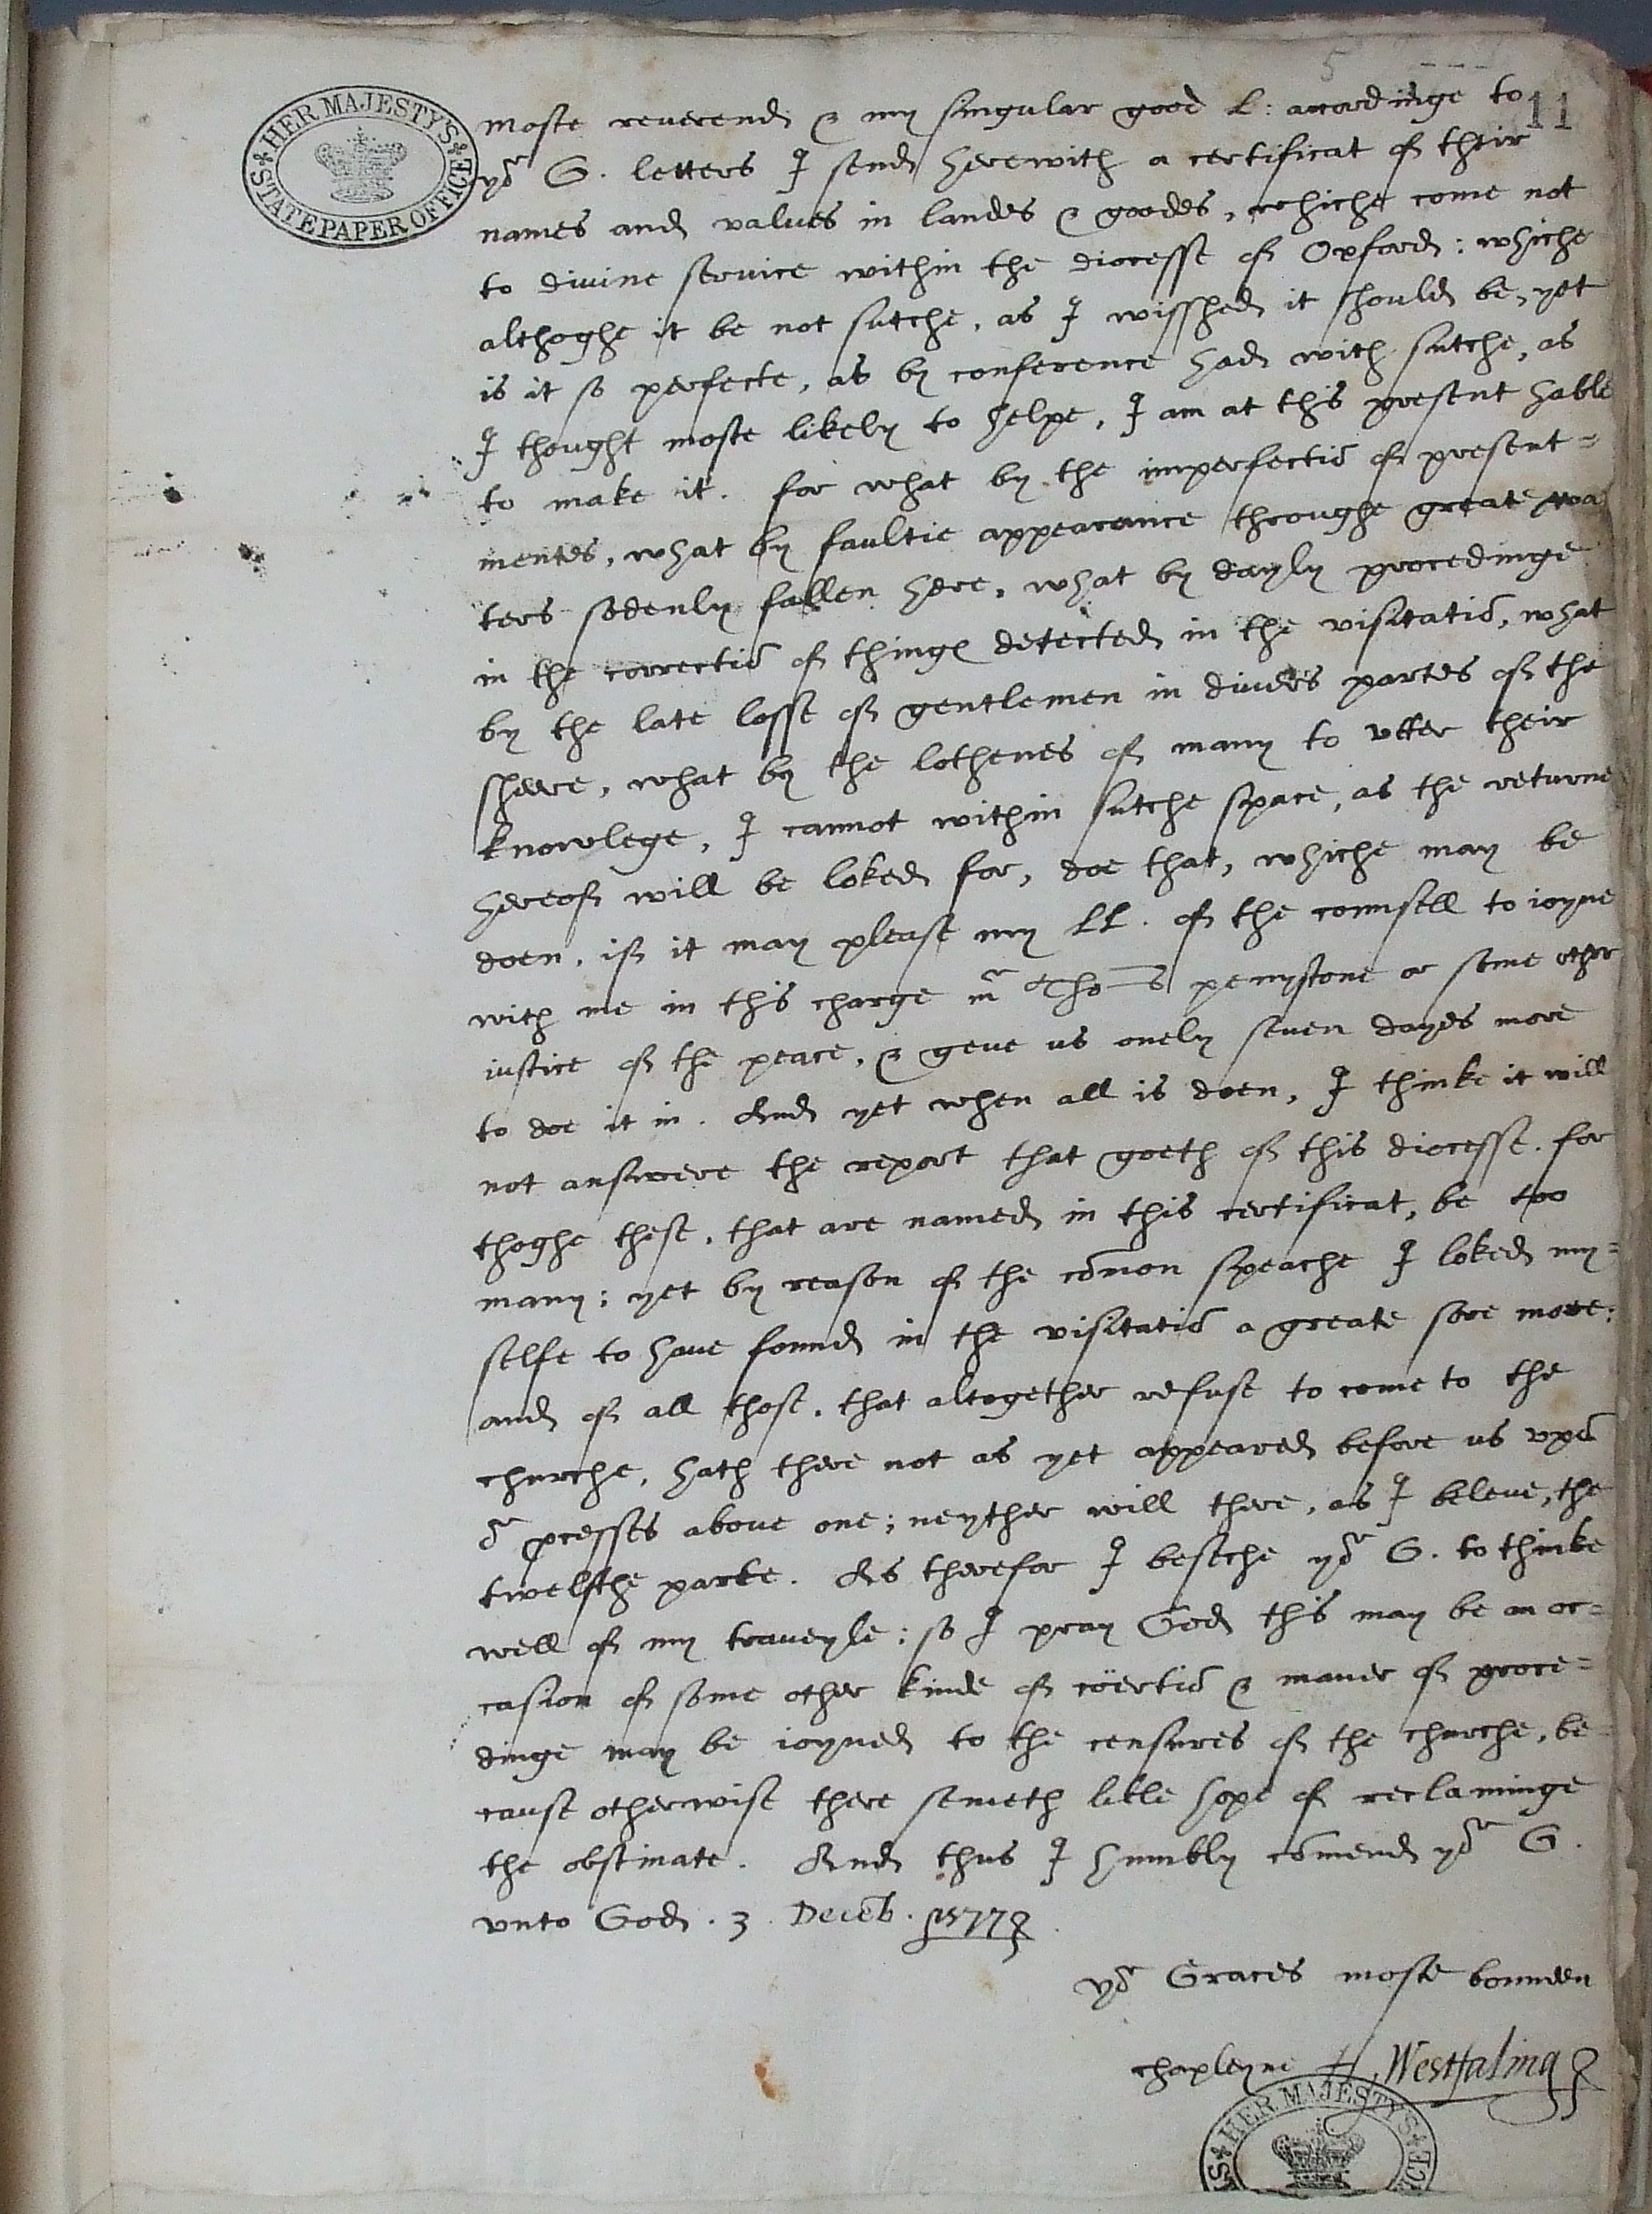 5
11
HER MAJESTY'S STATE PAPER OFFICE
moste reverend & my singular good L: accordinge to
yor G. letters I send herewith a certificat of their
names and values in landes & goodes, whiche come not
to divine service within the diocesse of Oxford: whiche
althoghe it be not sutche, as I wisshed it should be, yet
is it so perfecte, as by conference had with sutche, as
I thought moste likely to helpe, I am at this present hable
to make it. for what by the imperfectiō of present=
mentes, what by faultie appearance throughe great wa
ters sodenly fallen here, what by dayly procedinge
in the correctiō of things detected in the visitatiō, what
by the late losse of gentlemen in divers partes of the
sheere, what by the lothenes of many to utter their
knowlege, I cannot within sutche space, as the returne
hereof will be loked for, doe that, whiche may be
doen, if it may please my LL. of the counsell to ioyne
with me in this charge mr Thos penystone or some other
iustice of the peace, & geve us onely seven dayes more
to doe it in. And yet when all is doen, I thinke it will
not answere the report that goeth of this diocesse. for
thoghe these, that are named in this certificat, be too
many: yet by reason of the cōmon speache I loked my=
selfe to have found in the visitatiō a greate sore more:
and of all those, that altogether refuse to come to the
churche, hath there not as yet appeared before us vpō
or pcesses above one; neyther will there, as I beleve, the
twelfthe parte. As therefor I beseche yor G. to thinke
well of my traveyle: so I pray God this may be an oc=
casion of some other kinde of cöertiō & maner of proce=
dinge may be ioyned to the censures of the churche, be=
cause otherwise there semeth litle hope of reclaminge
the obstinate. And thus I humbly cōmend yor G.
vnto God. 3. Decēb. 1577.
yor Graces moste bounden
chapleyne H. Westfaling
HER MAJESTY'S